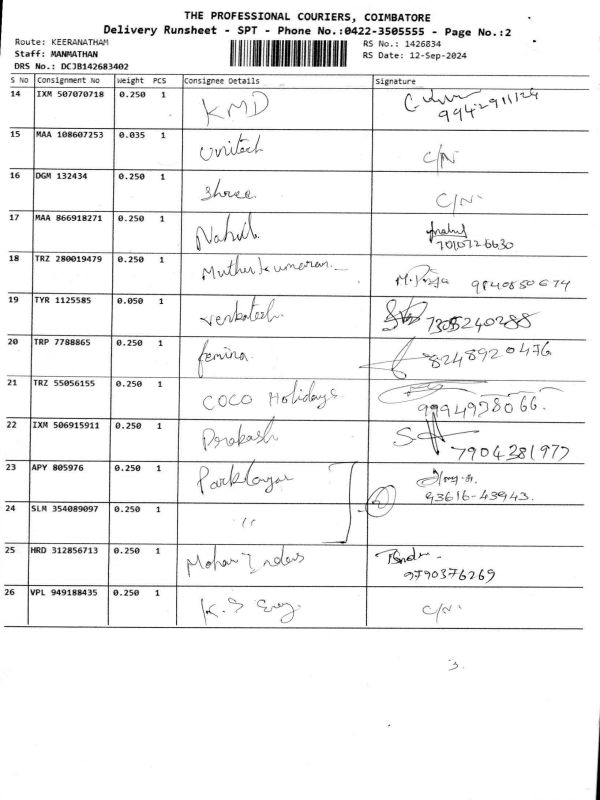 THE PROFESSIONAL COURIERS, COIMBATORE
Delivery Runsheet - SPT - Phone No.:0422-3505555 - Page No.:2
Route: KEERANATHAM RS No.: 1426834
Staff: MANMATHAN RS Date: 12-Sep-2024
DRS No.: DCJB142683402
S No Consignment No Weight PCS Consignee Details Signature
14 IXM 507070718 0.250 1 KMD
15 MAA 108607253 0.035 1 Unitech C/N
16 DGM 132434 0.250 1 Shree C/N.
17 MAA 866918271 0.250 1
7010726630
18 TRZ 280019479 0.250 1 Muthukumaran 9840850674
19 TYR 1125585 0.050 1 Venkatesh 7305240288
20 TRP 7788865 0.250 1 femina 8248920476
21 TRZ 55056155 0.250 1 COCO Holidays
9994978066.
22 IXM 506915911 0.250 1 Prakash
7904381977
23 APY 805976 0.250 1
93616-43943.
24 SLM 354089097 0.250 1 "
25 HRD 312856713 0.250 1 Mohan
9790376269
26 VPL 949188435 0.250 1 K.S C/N.
3.